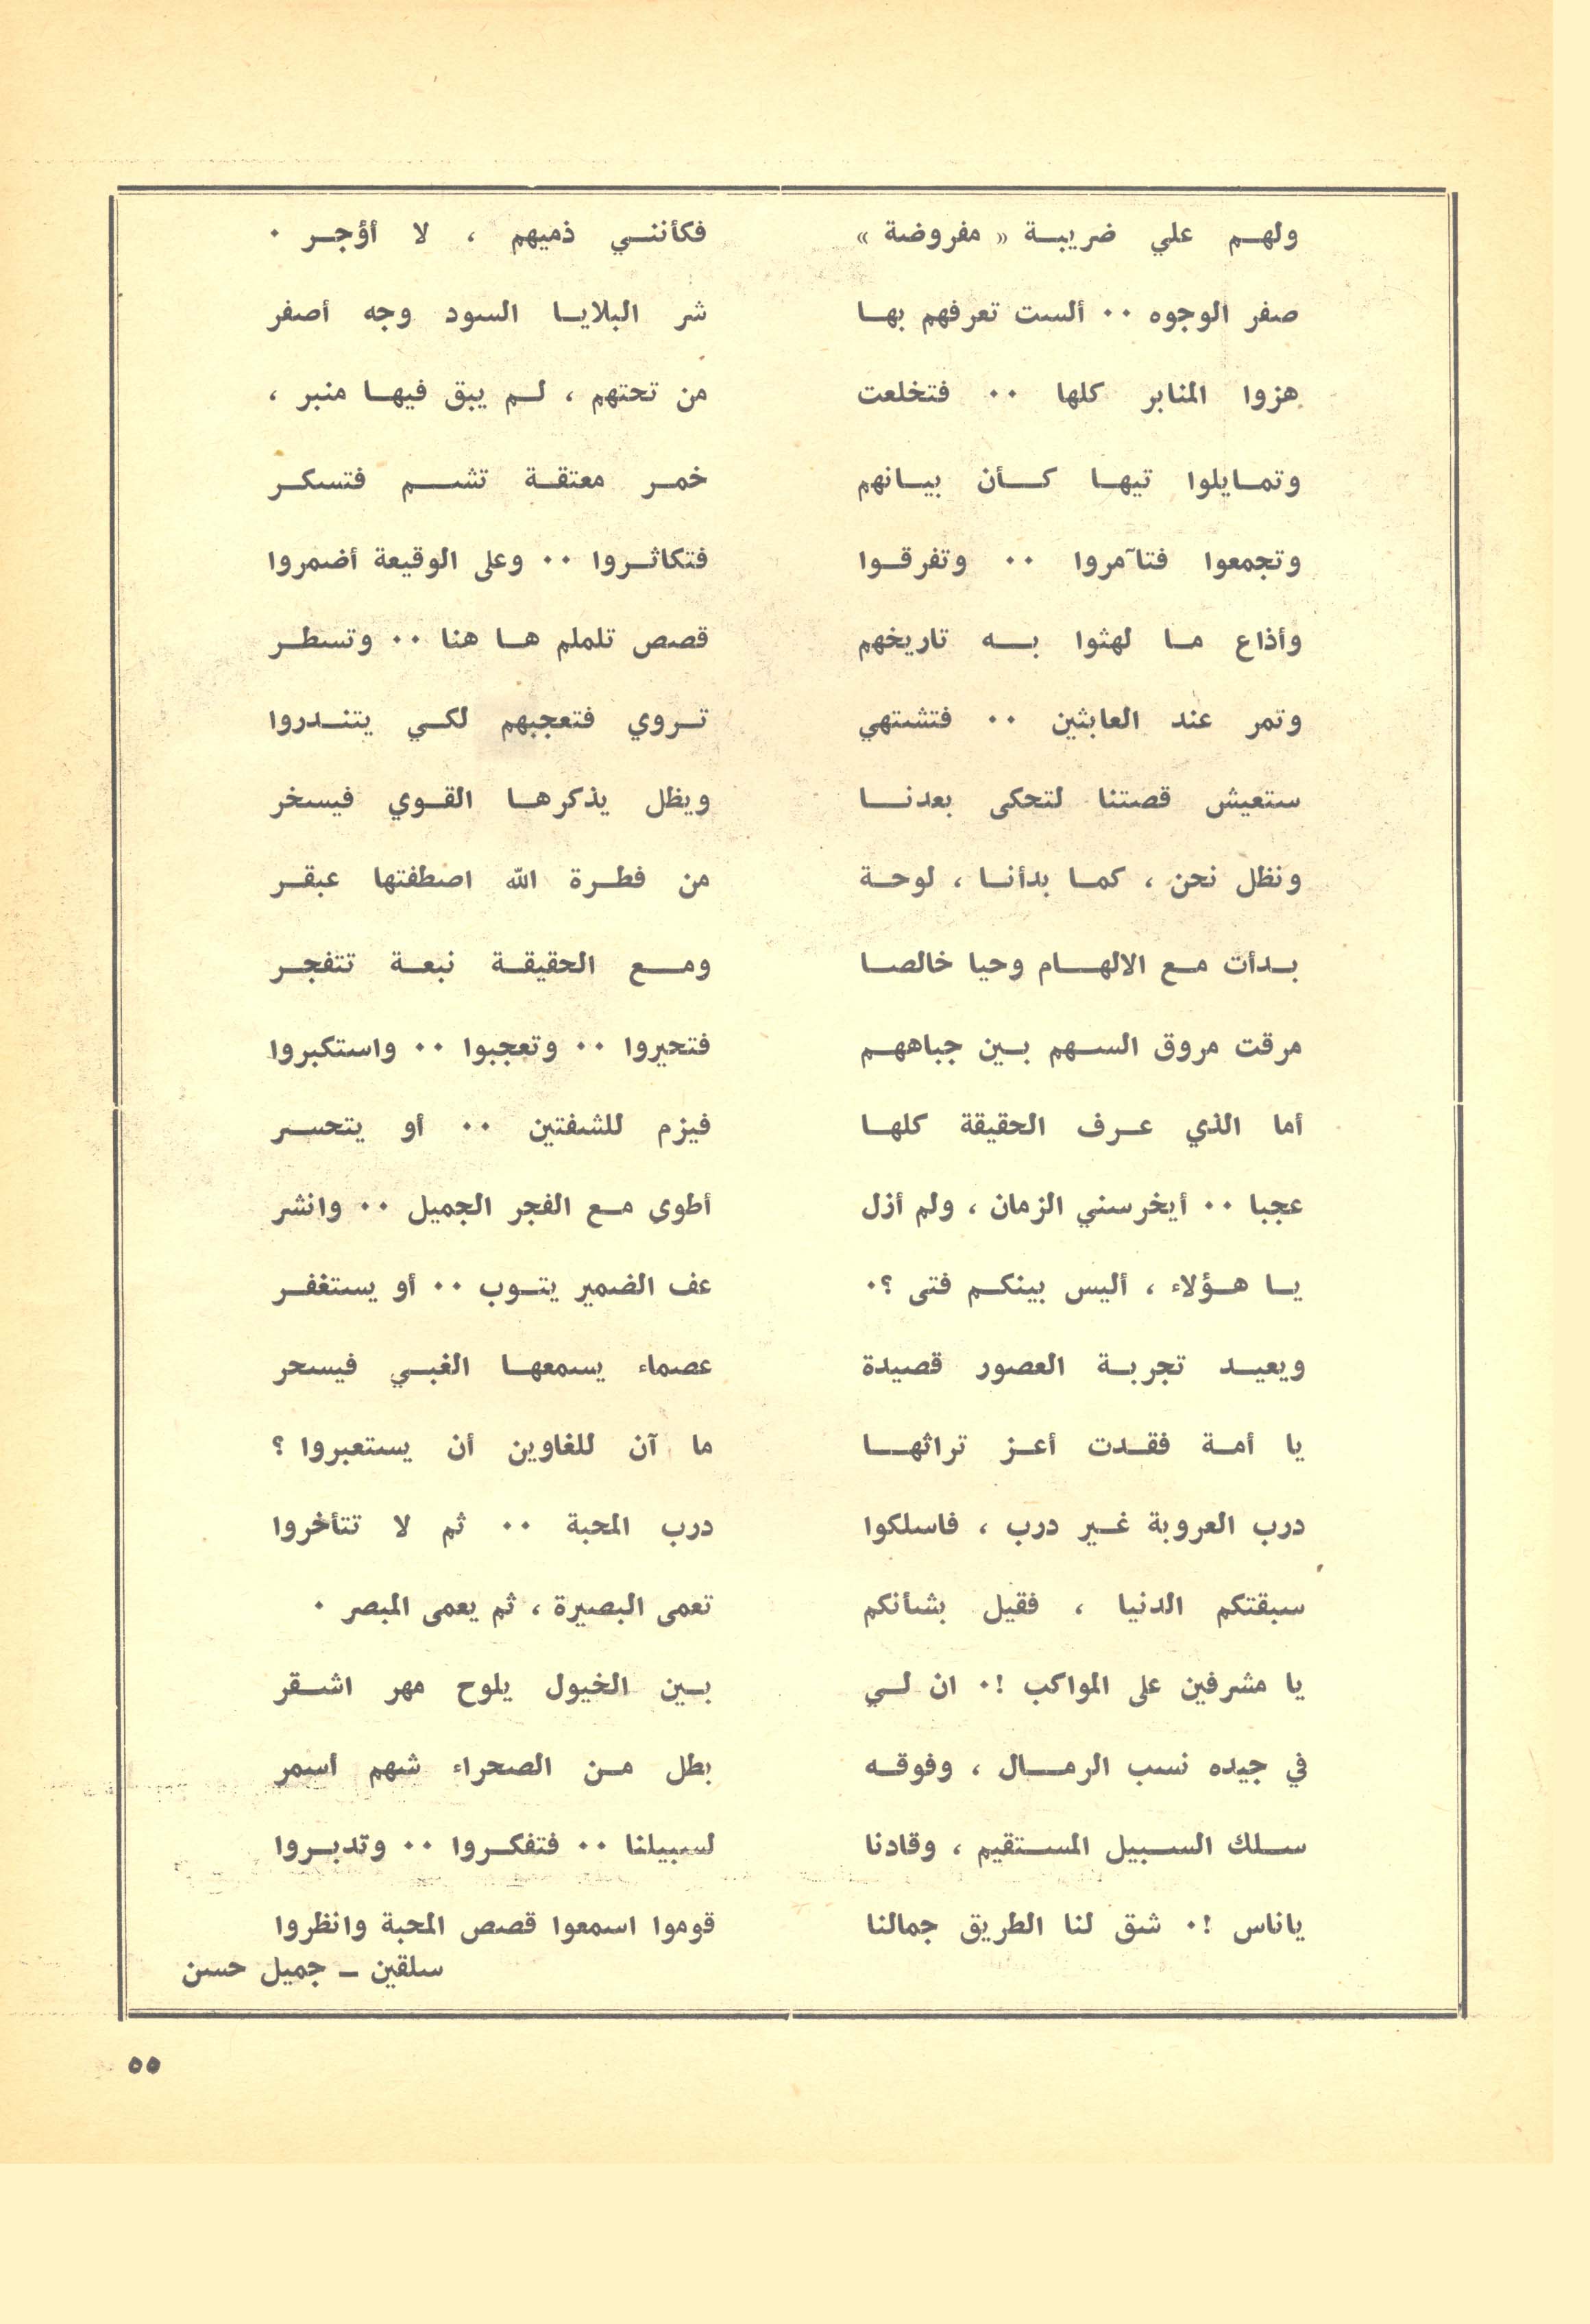 ولهم علي ضريبة « مفروضة » فكأنني ذميهم ، لا أؤجر ٠
صفر الوجوه ٠٠ ألست تعرفهم بها شر البلايا السود وجه أصفر
هزوا المنابر كلها ٠٠ فتخلعت من تحتهم ، لم يبق فيها منبر ،
وتمايلوا تيها كأن بيانهم خمر معتقة تشم فتسكر
وتجمعوا فتآمروا ٠٠ وتفرقوا فتكاثروا ٠٠ وعلى الوقيعة أضمروا
وأذاع ما لهثوا به تاريخهم قصص تلملم ها هنا ٠٠ وتسطر
وتمر عند العابثين ٠٠ فتشتهي تروي فتعجبهم لكي يتندروا
ستعيش قصتنا لتحكى بعدنا ويظل يذكرها القوي فيسخر
ونظل نحن ، كما بدأنا ، لوحة من فطرة الله اصطفتها عبقر
بدأت مع الالهام وحيا خالصا ومع الحقيقة نبعة تتفجر
مرقت مروق السهم بين جباههم فتحيروا ٠٠ وتعجبوا ٠٠ واستكبروا
أما الذي عرف الحقيقة كلها فيزم للشفتين ٠٠ أو يتحسر
عجبا ٠٠ أيخرسني الزمان ، ولم أزل أطوى مع الفجر الجميل ٠٠ وانشر
يا هؤلاء ، أليس بينكم فتى ؟٠ عف الضمير يتوب ٠٠ أو يستغفر
ويعيد تجربة العصور قصيدة عصماء يسمعها الغبي فيسحر
يا أمة فقدت أعز تراثها ما آن للغاوين أن يستعبروا ؟
درب العروبة غير درب ، فاسلكوا درب المحبة ٠٠ ثم لا تتأخروا
سبقتكم الدنيا ، فقيل بشأنكم تعمى البصيرة ، ثم يعمى المبصر ٠
يا مشرفين على المواكب !٠ ان لي بين الخيول يلوح مهر اشقر
في جيده نسب الرمال ، وفوقه بطل من الصحراء شهم اسمر
سلك السبيل المستقيم ، وقادنا لسبيلنا ٠٠ فتفكروا ٠٠ وتدبروا
ياناس !٠ شق لنا الطريق جمالنا قوموا اسمعوا قصص المحبة وانظروا
سلقين – جميل حسن
٥٥